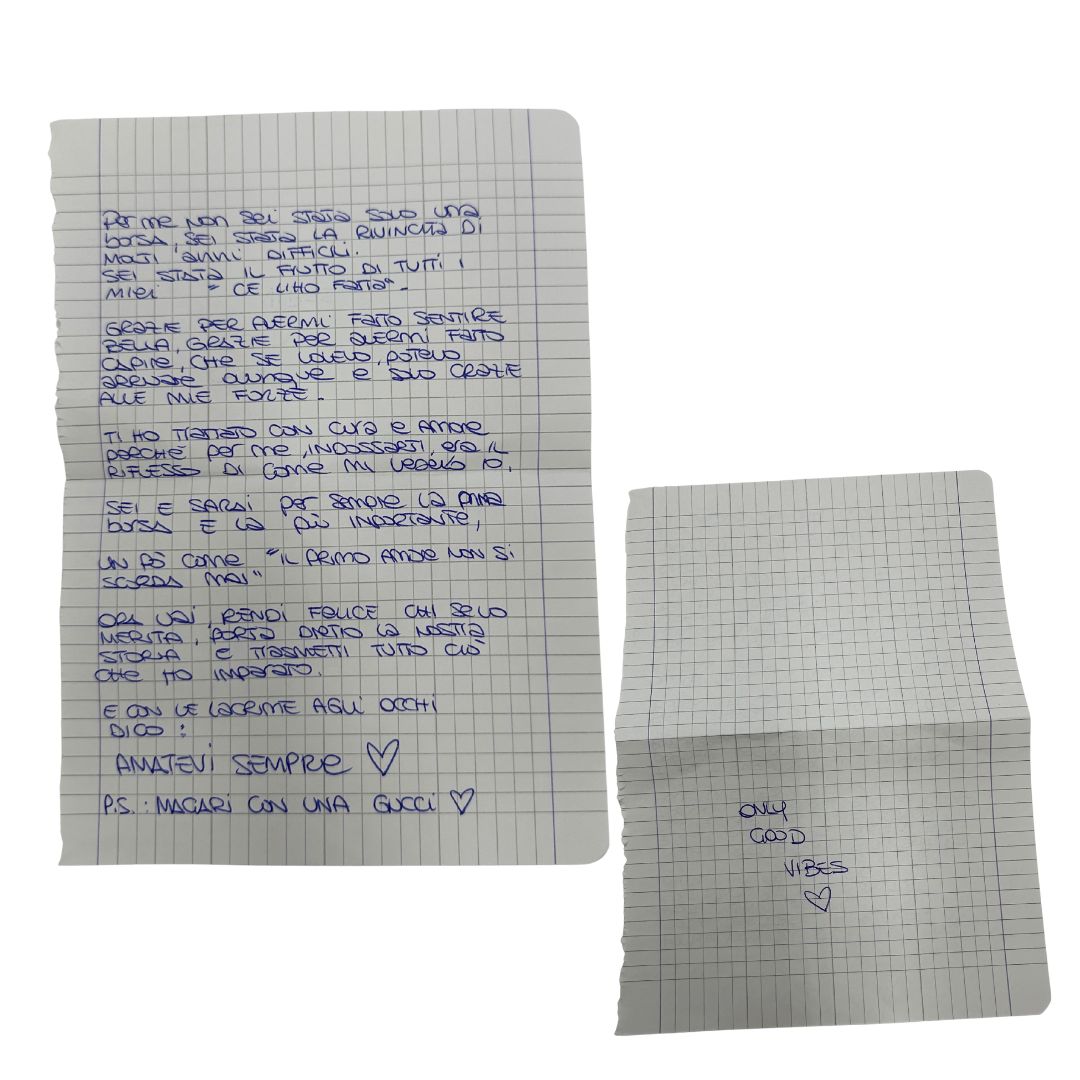 Per me non sei stata solo una
borsa, sei stata la rivincita di
molti anni difficili.
Sei stata il frutto di tutti i
miei "ce l'ho fatta".
Grazie per avermi fatto sentire
bella, grazie per avermi fatto
capire, che se volevo, potevo
arrivare ovunque e solo grazie
alle mie forze.
Ti ho trattato con cura e amore
perché per me, indossarti, era il
riflesso di come mi vedevo io.
Sei e sarai per sempre la prima
borsa e la più importante,
un pò come "il primo amore non si
scorda mai"
Ora vai, rendi felice chi se lo
merita, porta dietro la nostra
storia e trasmetti tutto ciò
che ho imparato.
E con le lacrime agli occhi
dico:
AMATEVI SEMPRE ♡
P.S.: MAGARI CON UNA GUCCI ♡
ONLY
GOOD
VIBES
♡